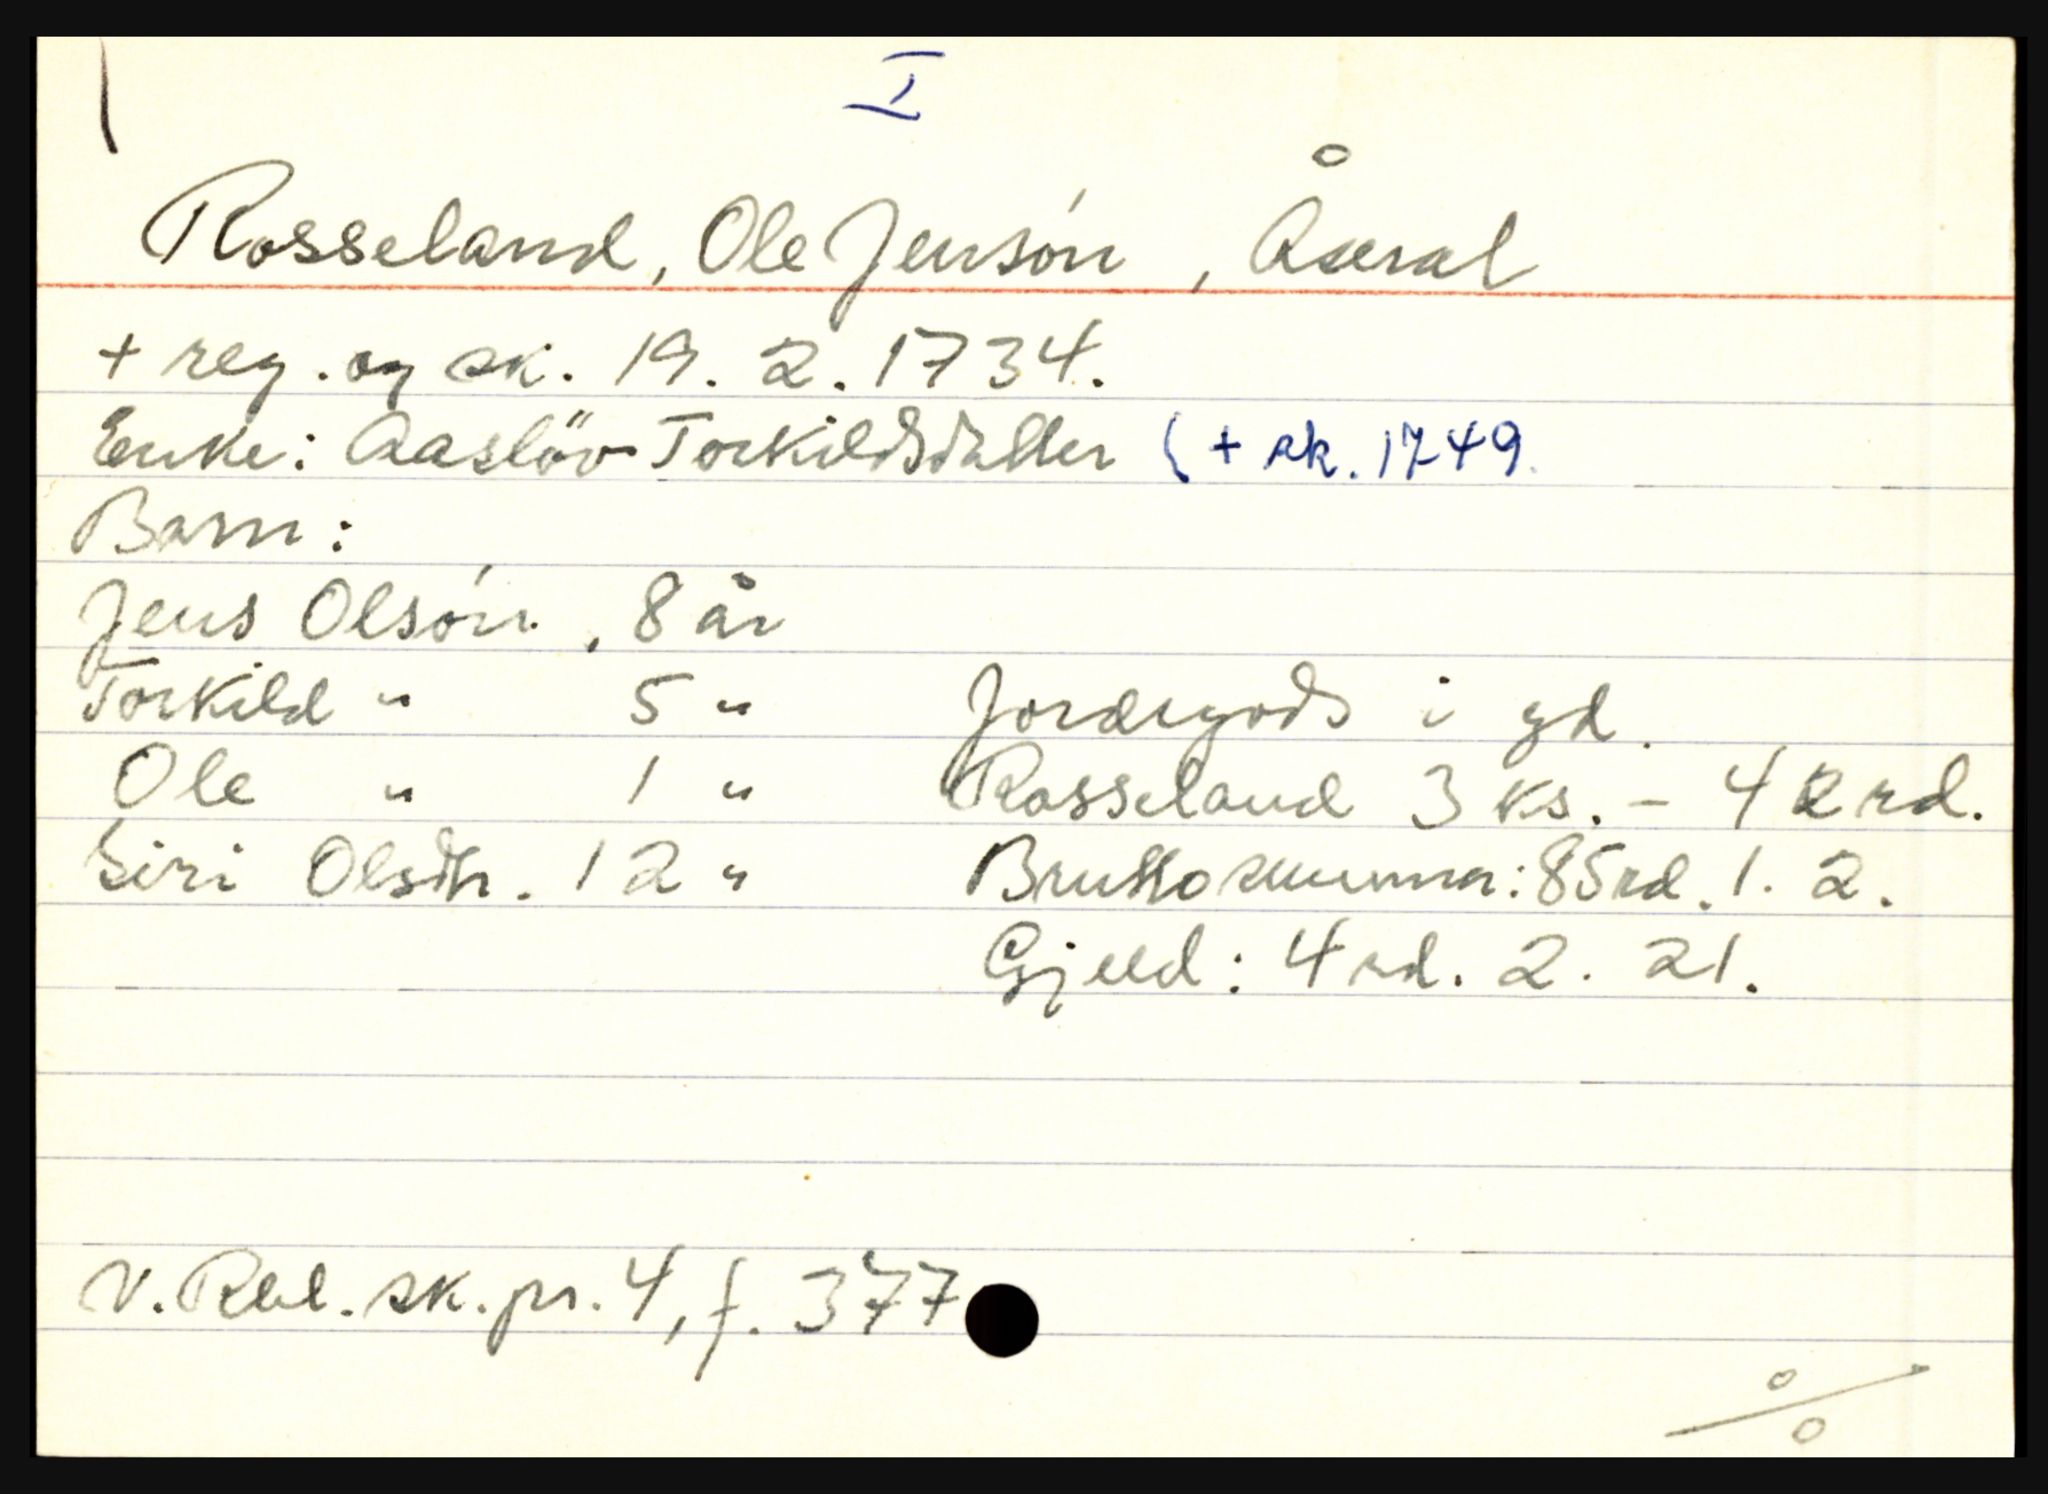 I
Rosseland, Ole Jensön, Åseral
+ reg. og sk. 19. 2. 1734.
Enke: Aaslöv Torkildsdatter (+ sk. 1749.
Barn:
Jens Olsön, 8 år
Torkild " 5 " Jordegods i gd.
Ole " 1 " Rosseland 3 ks. - 42 rd.
Siri Olsdtr. 12 " Bruttosummen: 85 rd. 1. 2.
Gjeld: 4 rd. 2. 21.
V. Rbl. sk. pr. 4, f. 377
%